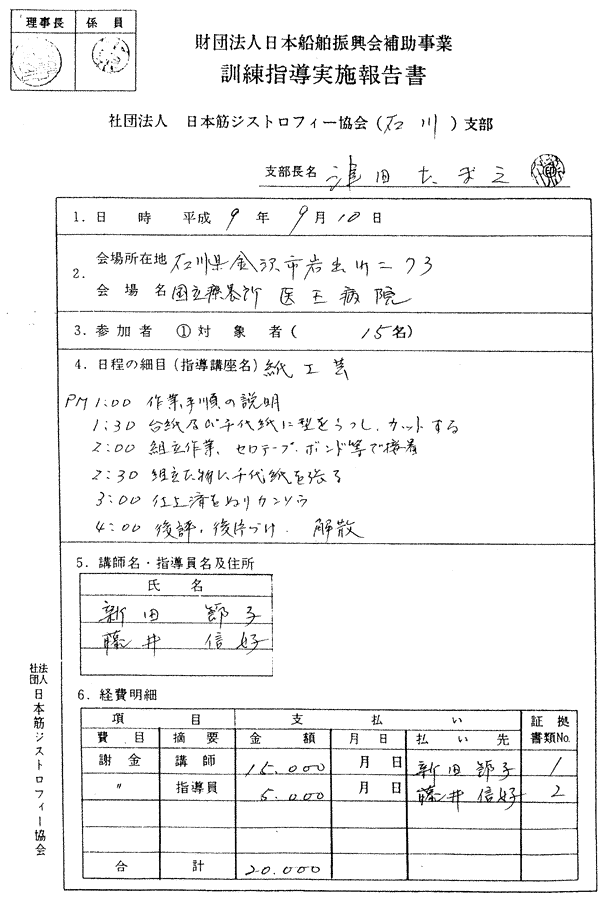 理事長 係員
財団法人日本船舶振興会補助事業
訓練指導実施報告書
社団法人 日本筋ジストロフィー協会(石川)支部
支部長名 津田たま江
1. 日 時 平成 9 年 9月 10 日
2. 会場所在地 石川県金沢市岩出町ニ73
会場名 国立療養所 医王病院
3. 参加者 ①対象者( 15名)
4. 日程の細目(指導講座名) 紙工芸
PM 1:00 作業手順の説明
1:30 台紙及び千代紙に型をうつし、カットする
2:00 組立作業、セロテープ・ボンド等で接着
2:30 組立た物に千代紙を張る
3:00 仕上済をぬりカンソウ
4:00 後評、後片づけ. 解散
5. 講師名・指導員名及住所
氏 名
新田 節子
藤井 信好
6. 経費明細
項 目 支 払 い 証 拠
費 目 摘 要 金 額 月 日 払 い 先 書類No.
謝 金 講 師 15.000 月 日 新田 節子 1
〃 指導員 5.000 月 日 藤井 信好 2
合 計 20.000
社団法人 日本筋ジストロフィー協会